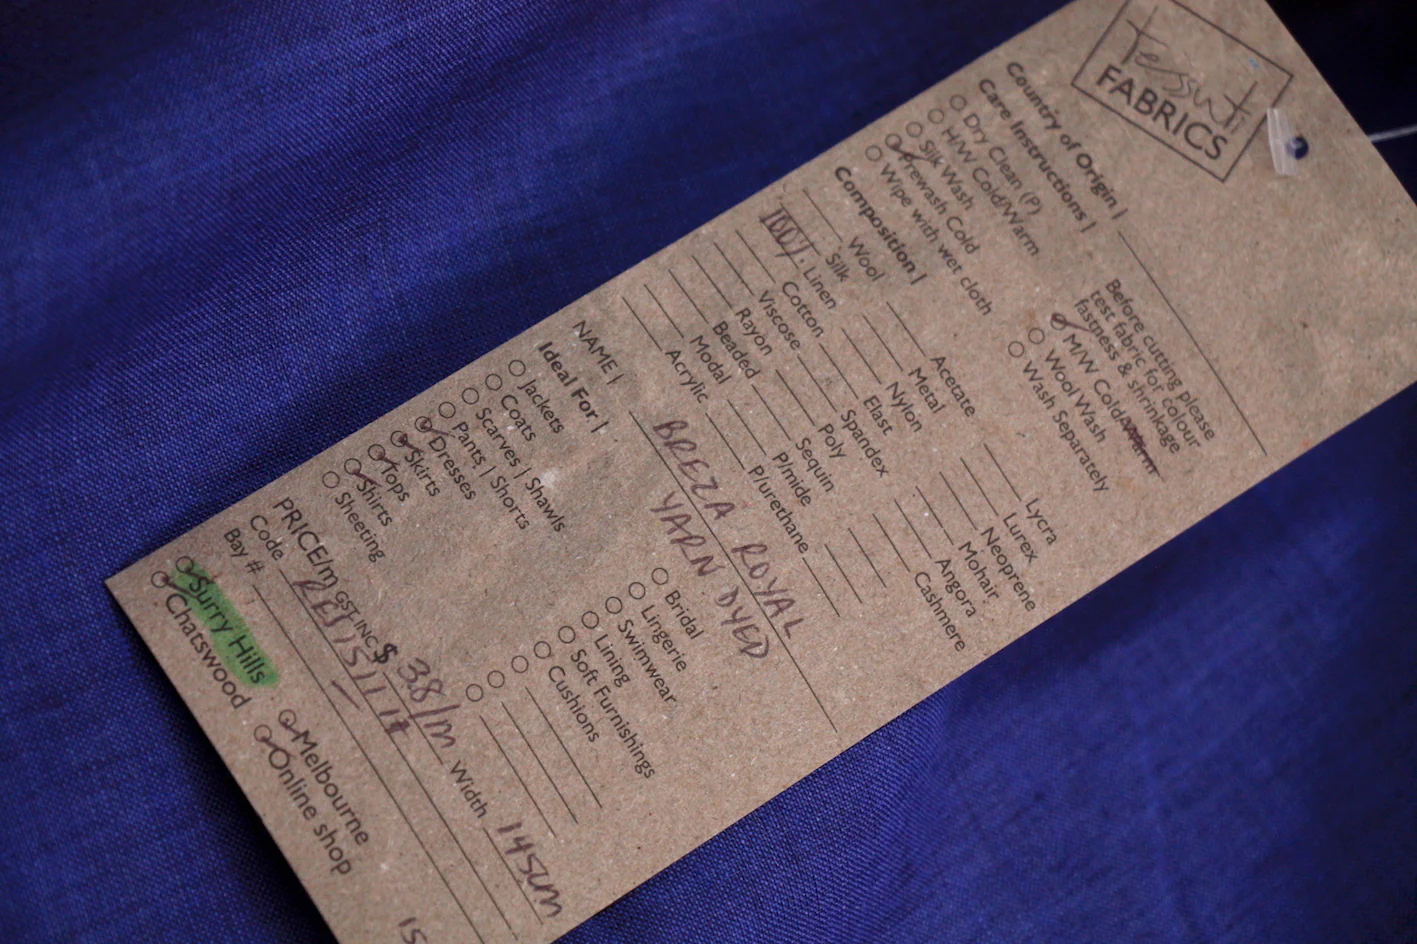 Tessuti
FABRICS
Country of Origin |
Care Instructions |
Dry Clean (P)
H/W Cold/Warm
Silk Wash
Prewash Cold
Wipe with wet cloth
Before cutting please
test fabric for colour
fastness & shrinkage
M/W Cold/Warm
Wool Wash
Wash Separately
Composition |
Wool
Silk
100% Linen
Cotton
Viscose
Rayon
Beaded
Modal
Acrylic
Acetate
Metal
Nylon
Elast
Spandex
Poly
Sequin
P/mide
P/urethane
Lycra
Lurex
Neoprene
Mohair
Angora
Cashmere
NAME | BREZA ROYAL
YARN DYED
Ideal For |
Jackets
Coats
Scarves | Shawls
Pants | Shorts
Dresses
Skirts
Tops
Shirts
Sheeting
Bridal
Lingerie
Swimwear
Lining
Soft Furnishings
Cushions
PRICE/m GST INC $ 38/m Width 145cm
Code
Bay #
Surry Hills
Chatswood
Melbourne
Online shop